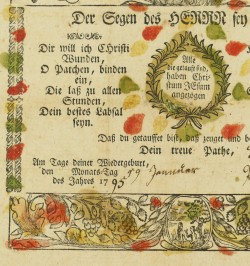 Der Segen des HERRN sey
Dir will ich Christi
Wunden,
O Patchen, binden
ein,
Die laß zu allen
Stunden,
Dein bestes Labsal
seyn.
Alle
die getauft sind,
haben Chri-
stum JEsum
angezogen
Daß du getauffet bist, daß zeuget und
Dein treue Pathe,
Am Tage deiner Wiedergeburt,
den 59 Januar
Monats-Tag
des Jahres 1795